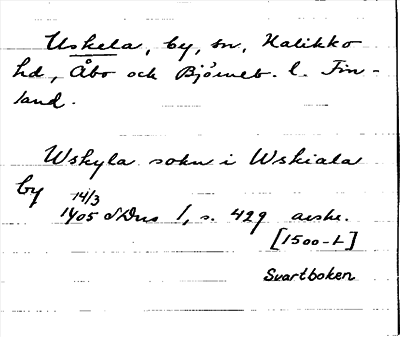 Uskela, by, sn, Halikko
hd, Åbo och Björneb. l. Fin-
land.
Wskyla sokn i Wskiala
by
14/3
1405 SDns 1, s. 429 avskr.
[1500-t]
Svartboken